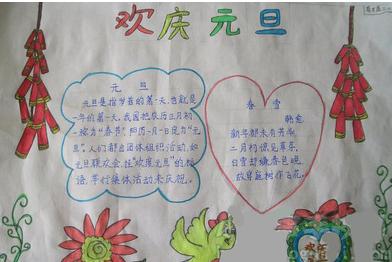 欢庆元旦
元 旦
元旦是指岁首的第一天,也就是
一年的第一天,我国把农历正月初
一称为“春节”,阳历一月一日定为“元
旦”。人们都会团体组织活动,如
元旦联欢会、挂“欢度元旦”的标
语,举行集体活动来庆祝。
春 雪
韩愈
新年都未有芳华
二月初惊见草芽。
白雪却嫌春色晚
故穿庭树作飞花。
欢度